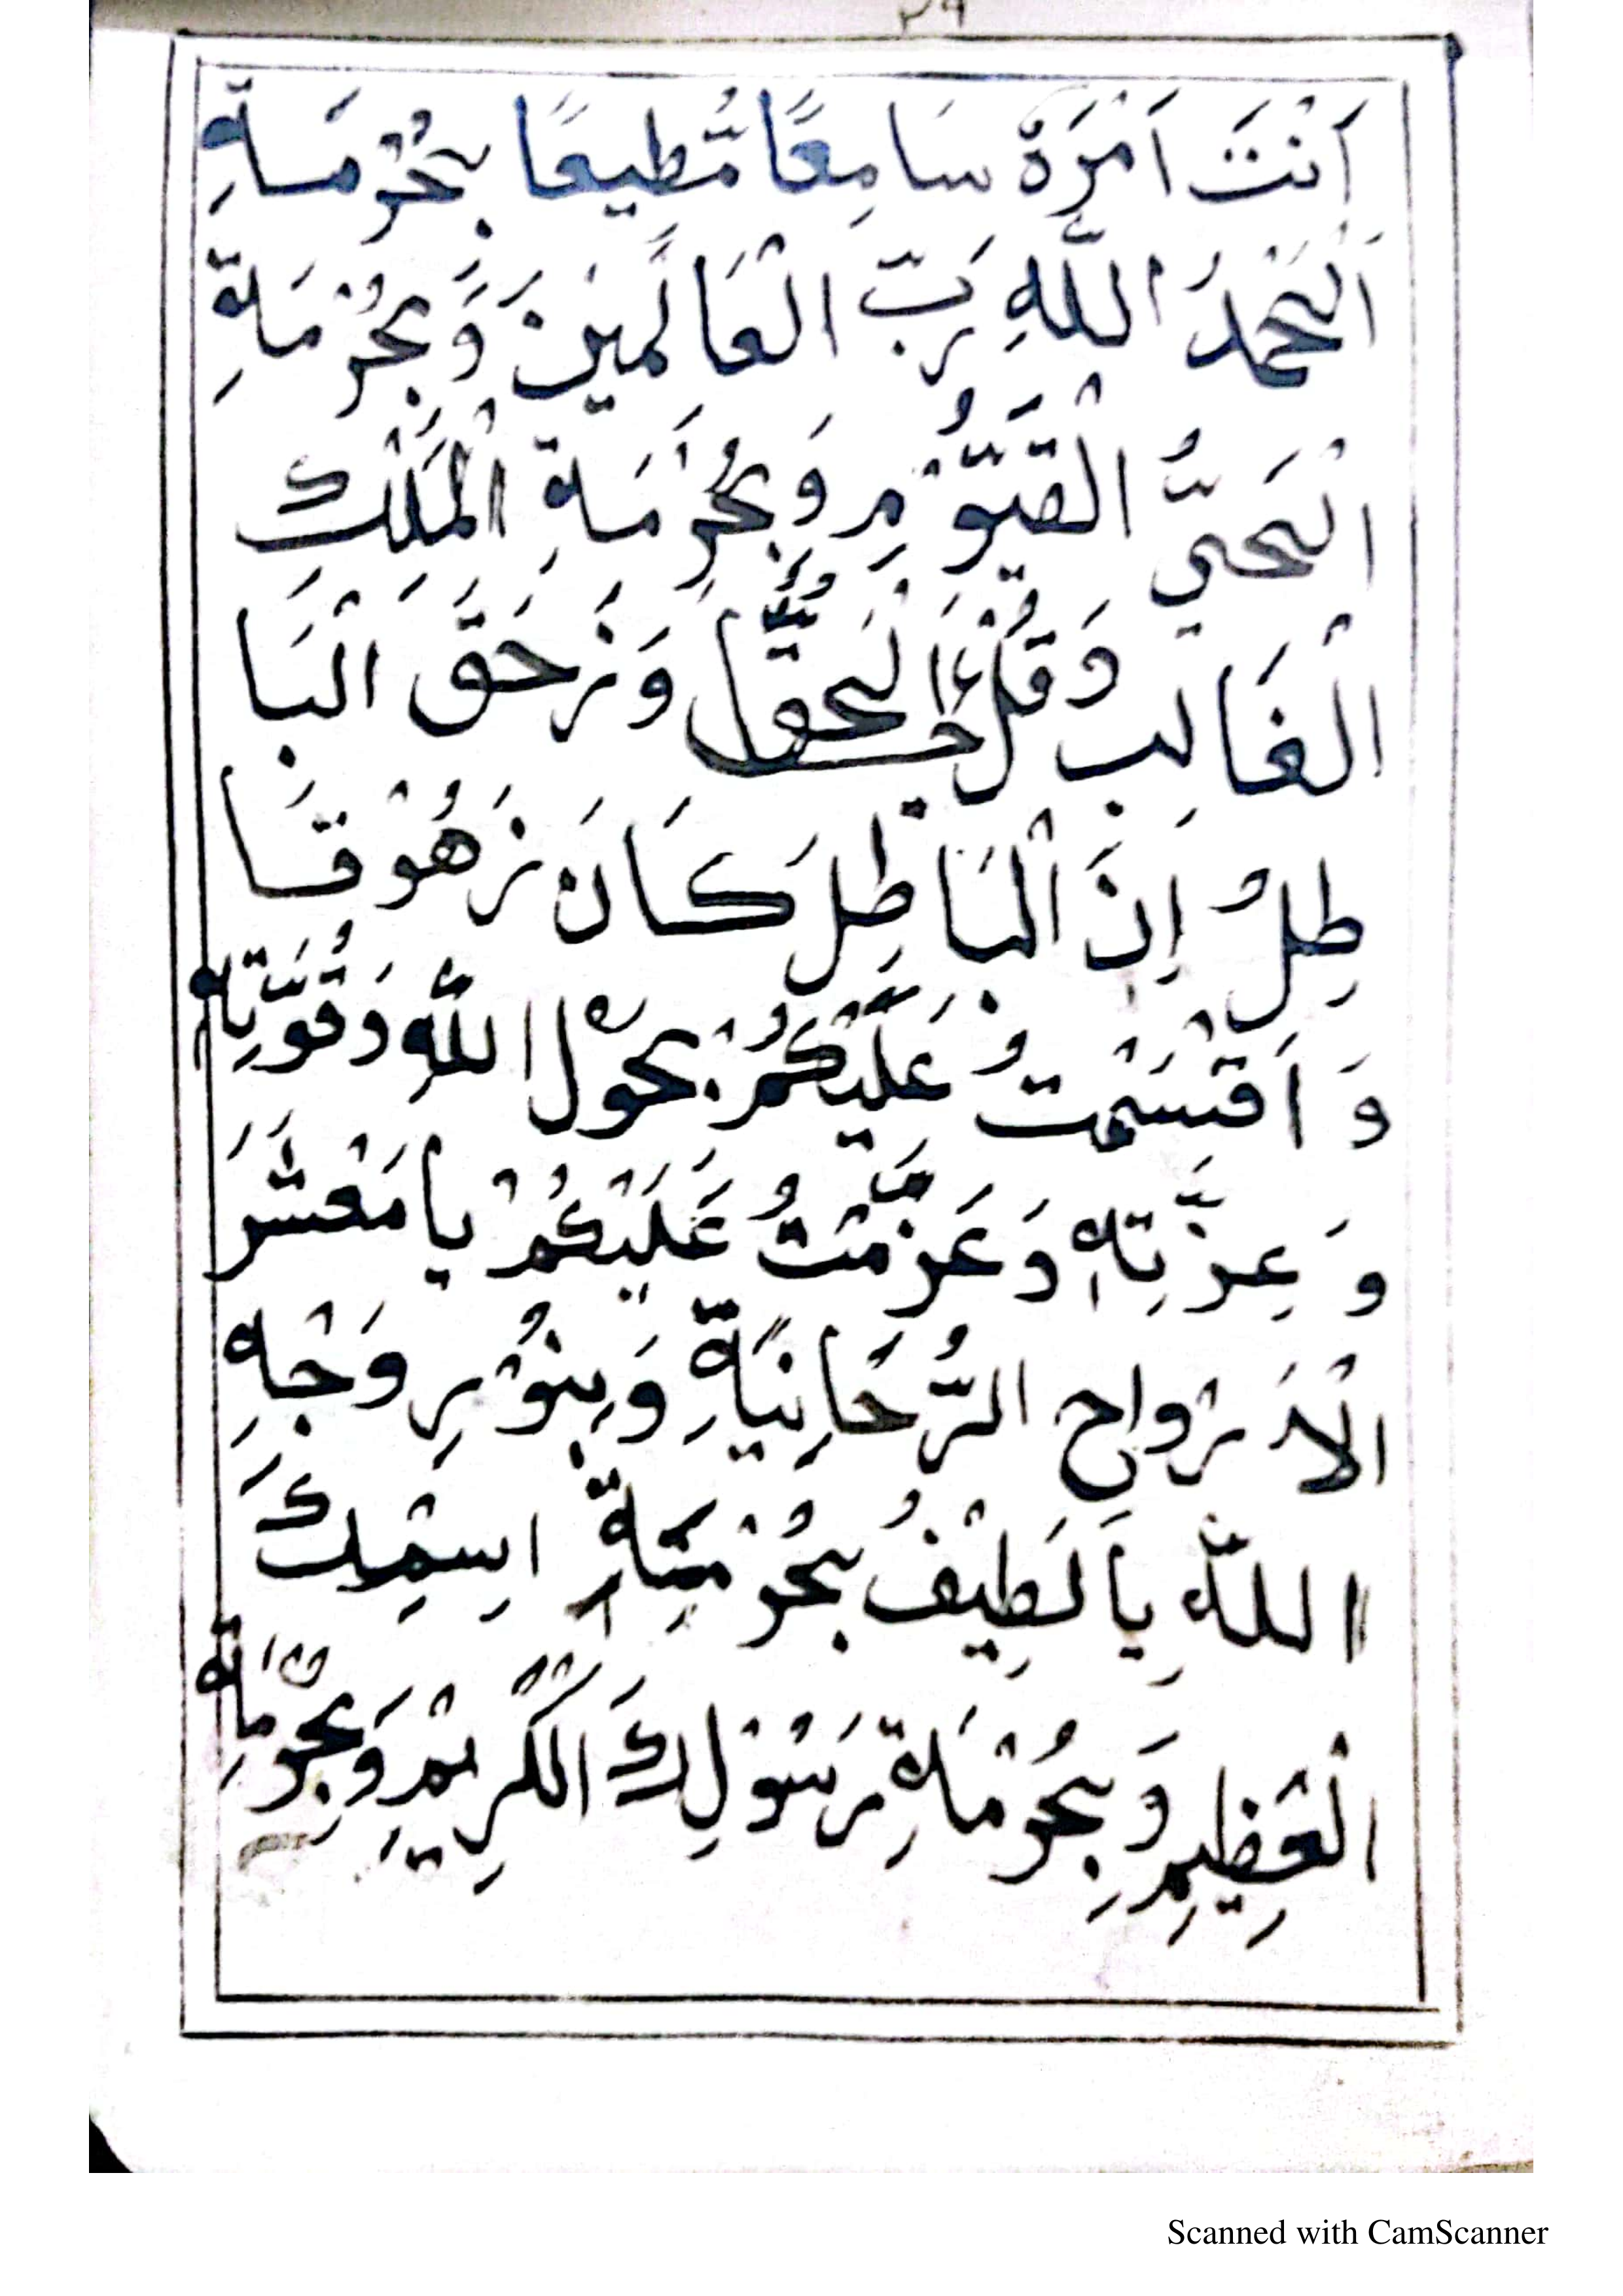 ٢٩
اَنْتَ اَمْرَهٗ سَامِعًا مُّطِيعًا بِحُرْمَةِ
اَلْحَمْدُ اللّٰهِ رَبِّ الْعَالَمِيْنَ وَبِحُرْمَةِ
الْحَيُّ الْقَيُّوْمِ وَبِحُرْمَةِ الْمَلِكِ
الْغَالِبِ وَقُلْ جَاءَ الْحَقُّ وَزَحَقَ الْبَا
طِلُ اِنَّ الْبَاطِلَ كَانَ زَهُوْقَا
وَ اَقْسَمْتُ عَلَيْكُمْ بِحَوْلِ اللّٰهِ وَقُوَّتِهٖ
وَ عِزَّتِهٖ وَعَزَمْتُ عَلَيْكُمْ يَا مَعْشَرَ
الْاَرْوَاحِ الرُّحَانِيَةِ وَبِنُوْرِ وَجْهِ
اللّٰهِ يَا لَطِيْفُ بِحُرْمَةِ اِسْمِكَ
الْعَظِيْمِ وَبِحُرْمَةِ رَسُوْلِكَ الْكَرِيْمِ وَبِحُرْمَةِ
Scanned with CamScanner